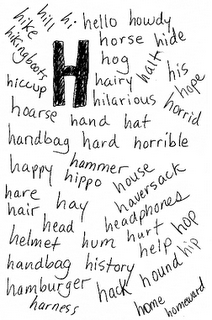 hi hello howdy
hill
hike
hikingboots
H
horse hide
hog halt
hiccup hairy his
hilarious hope
hoarse hand hat horrid
handbag hard horrible
happy hammer house
hippo haversack
hare hay headphones
hair
head hurt hop
helmet hum help hip
handbag history hound
hamburger hack home
harness homeward